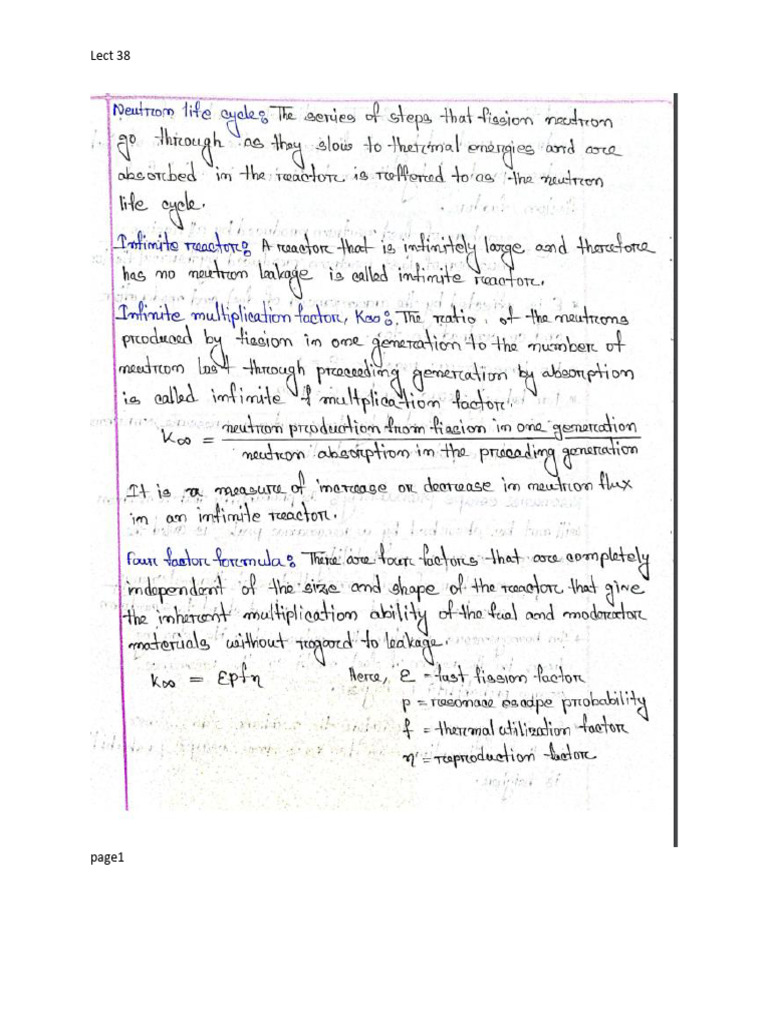 Lect 38
Neutron life cycle: The series of steps that fission neutron
go through as they slow to thermal energies and are
absorbed in the reactor is reffered to as the neutron
life cycle.
Infinite reactor: A reactor that is infinitely large and therefore
has no neutron leakage is called infinite reactor.
Infinite multiplication factor, K∞: The ratio of the neutrons
produced by fission in one generation to the number of
neutron lost through preceeding generation by absorption
is called infinite multplication factor.
K∞ = neutron production from fission in one generation
neutron absorption in the preceding generation
It is a measure of increase or decrease in neutron flux
in an infinite reactor.
Four factor formula: There are four factors that are completely
independent of the size and shape of the reactor that give
the inherent multiplication ability of the fual and moderator
materials without regard to leakage.
K∞ = εpfη Here, ε - fast fission factor
p = resonace escape probability
f = thermal utilization factor
η = reproduction factor
page1